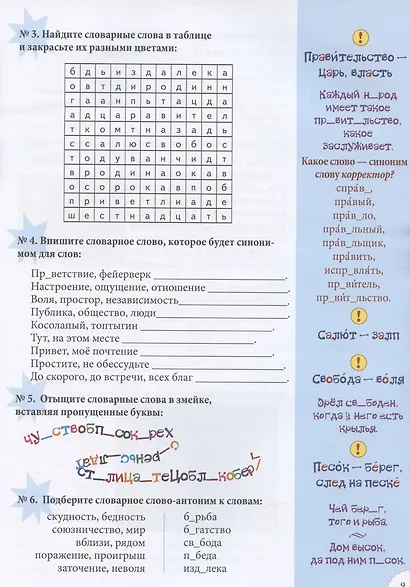 № 3. Найдите словарные слова в таблице
и закрасьте их разными цветами:
б д ь и з д а л е к а
о в т д и р о д и н н
г а а н п ь т а ц д а
а д ц а р а в и т е л
т к о м т н а з а д ь
с с а л ю с в о б о с
т о д у в а н ч и д т
в р о д и н а о к а в
о с о р о к а в п о б
п р и в е т л и а д е
ш е с т н а д ц а т ь
№ 4. Впишите словарное слово, которое будет синони-
мом для слов:
Пр_ветствие, фейерверк
Настроение, ощущение, отношение
Воля, простор, независимость
Публика, общество, люди
Косолапый, топтыгин
Тут, на этом месте
Привет, моё почтение
Простите, не обессудьте
До скорого, до встречи, всех благ
№ 5. Отыщите словарные слова в змейке,
вставляя пропущенные буквы:
чу_ствобп_сок_рех
ст_лица_теЦобл_кобер
№ 6. Подберите словарное слово-антоним к словам:
скудность, бедность б_рьба
союзничество, мир б_гатство
вблизи, рядом св_бода
поражение, проигрыш п_беда
заточение, неволя изд_лека
Прави́тельство —
Царь, власть
Каждый н_род
имеет такое
пр_вит_льство,
какое
заслуживает.
Какое слово — синоним
слову корректор?
спра́в_,
пра́вый,
пра́в_ло,
пра́в_льный,
пра́в_льщик,
пра́вить,
испр_вля́ть,
пр_ви́тель,
пр_ви́т_льство.
Салю́т — залп
Свобо́да — во́ля
Орёл св_боден,
когда у него есть
крылья.
Песо́к — бе́рег,
след на песке́
Чей бер_г,
того и рыба.
Дом высок,
да под ним п_сок.
9